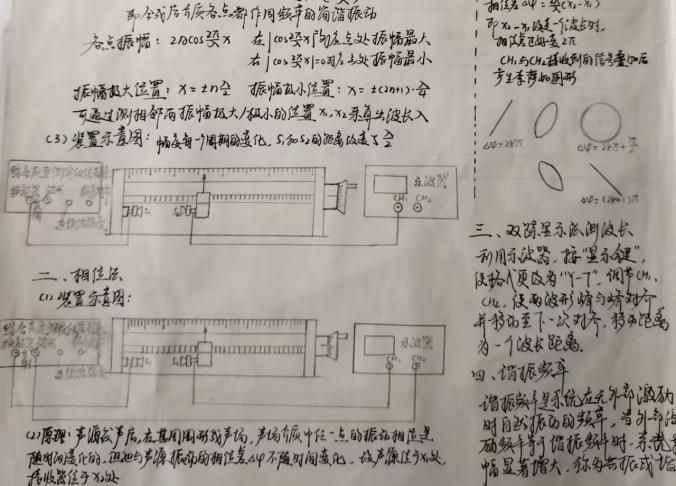 即全域后介质各点都作同频率的简谐振动
各点振幅：2A|cos 2π/λ x 在|cos 2π/λ x|=1的各点处振幅最大
在|cos 2π/λ x|=0的点处振幅最小
振幅极大位置：x=±n λ/2 振幅极小位置：x=±(2n+1)·λ/4
可通过测相邻两振幅极大/极小的位置x₁,x₂来算出波长λ
(3)装置示意图：幅度每一个周期的变化，S₁和S₂的距离改变了λ/2
示波器
CH₁ CH₂
S₁ S₂
二、相位法
(1)装置示意图：
示波器
CH₁ CH₂
(2)原理：声源发声后，在其周围形成声场，声场介质中任一点的振动相位是
随时间变化的，但它与声源振动的相位差Δφ不随时间变化，设声源位于x₁处，
接收器位于x₂处
相位差Δφ=
即x₂-x₁改变一个波长时，
相位差改变2π
CH₁与CH₂接收到的信号叠加后
产生李萨如图形
Δφ=2kπ Δφ=2kπ+π/2
Δφ=(2k+1)π
三、双踪显示法测波长
利用示波器，按“显示键”，
使格式更改为“Y-T”，调节CH₁、
CH₂，使两波形峰与峰对齐
并移动至下一次对齐，移动距离
为一个波长距离。
四、谐振频率
谐振频率是系统在无外部激励
时自然振动的频率，当外部激
励频率等于谐振频率时，系统振
幅显著增大，称为共振或谐